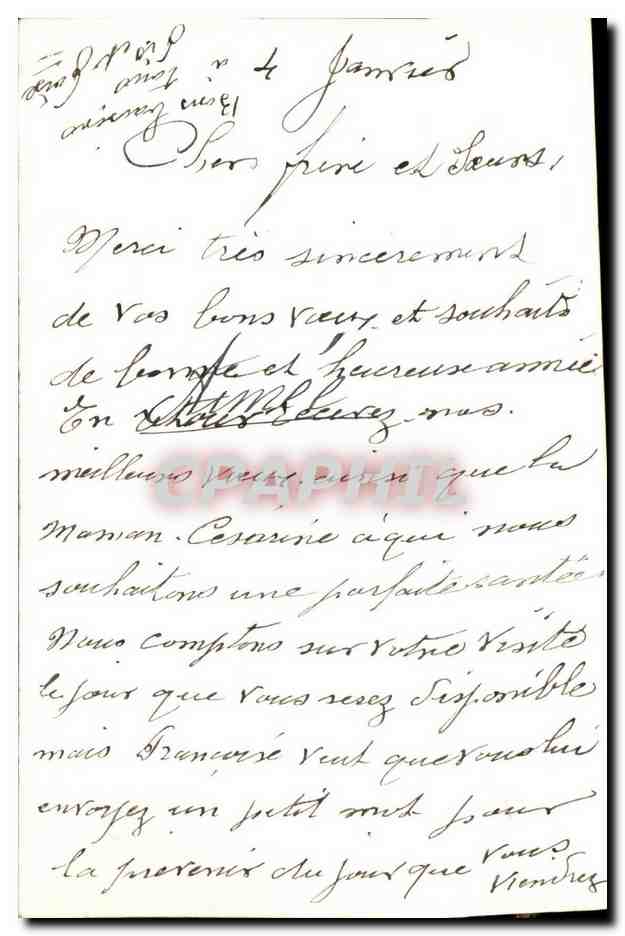 4 Janvier
Chers frère et Sœurs,
Merci très sincèrement
de vos bons vœux et souhaits
de bonne et heureuse année
En retour recevez nos
meilleurs vœux ainsi que la
Maman Césarine à qui nous
souhaitons une parfaite santée
Nous comptons sur votre visite
le jour que vous serez disponible
mais Françoise veut que vous lui
envoyez un petit mot pour
la prevenir du jour que vous
viendrez
Bons baisers
à tous
CPAPHIL